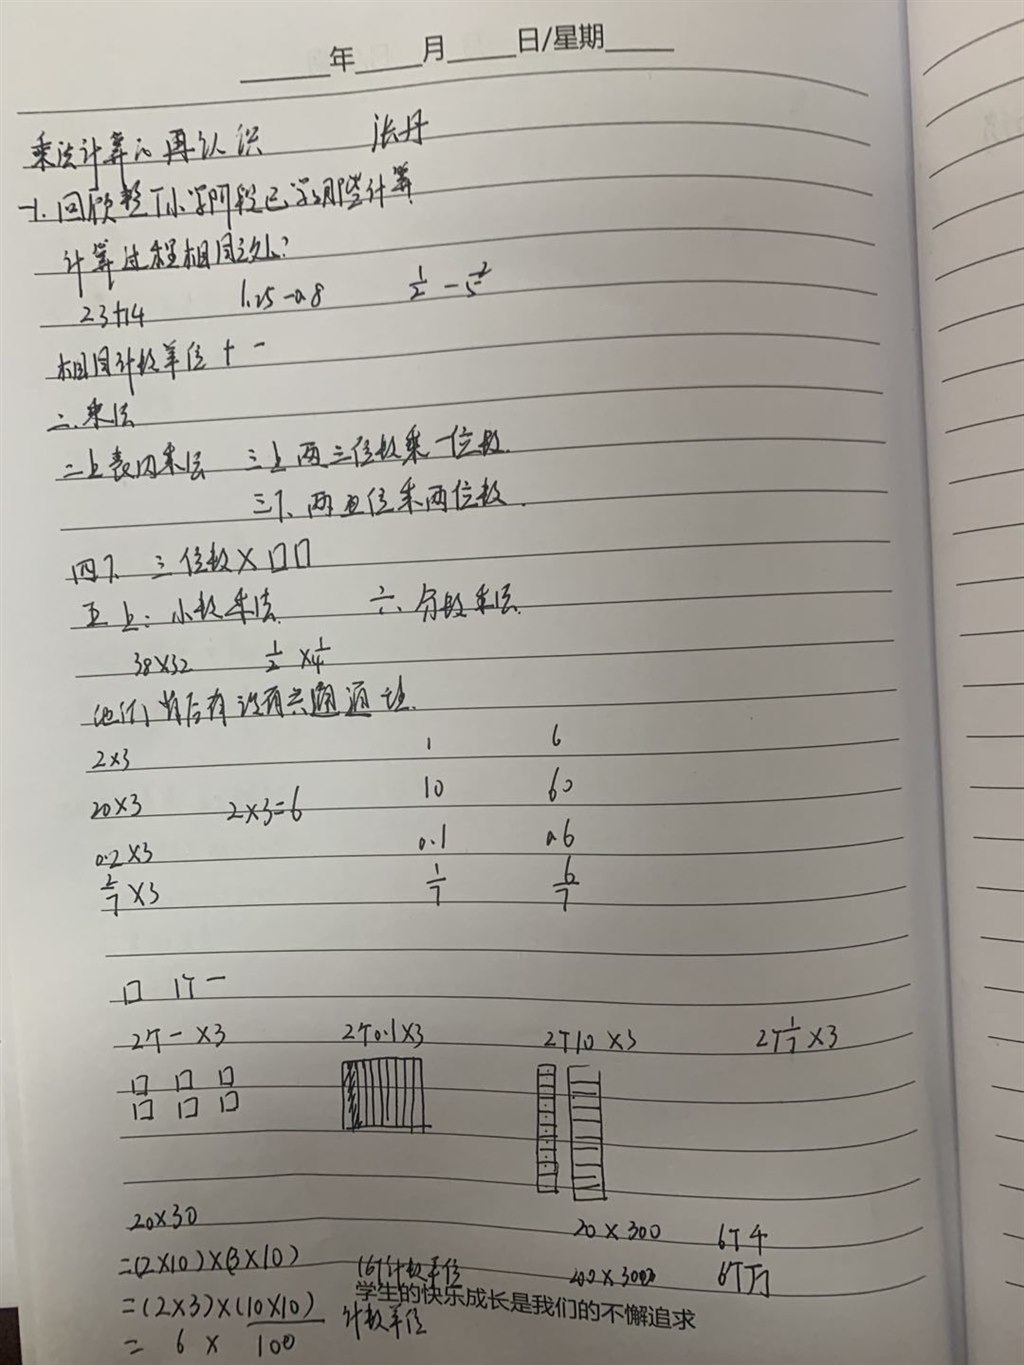 年 月 日/星期
乘法计算的再认识
一1.回顾整个小学阶段已学习那些计算
计算过程相同之处?
23+14 1.25-0.8 1/2 - 2/5
相同计数单位 + -
二.乘法
二上表内乘法 三上 两三位数乘一位数.
三下、两位乘两位数.
四下. 三位数×口口
五上: 小数乘法 六、分数乘法.
38×32 1/2 ×1/4
他们背后有没有共通
2×3 1 6
20×3 2×3=6 10 60
0.2×3 0.1 0.6
2/7×3 1/7 6/7
口 1个一
2个一×3 2个0.1×3 2个10×3 2个1/7×3
20×30 20×300 6个千
=(2×10)×(3×10) 6个计数单位 200×3000 6个万
学生的快乐成长是我们的不懈追求
=(2×3)×(10×10) 计数单位
= 6 × 100